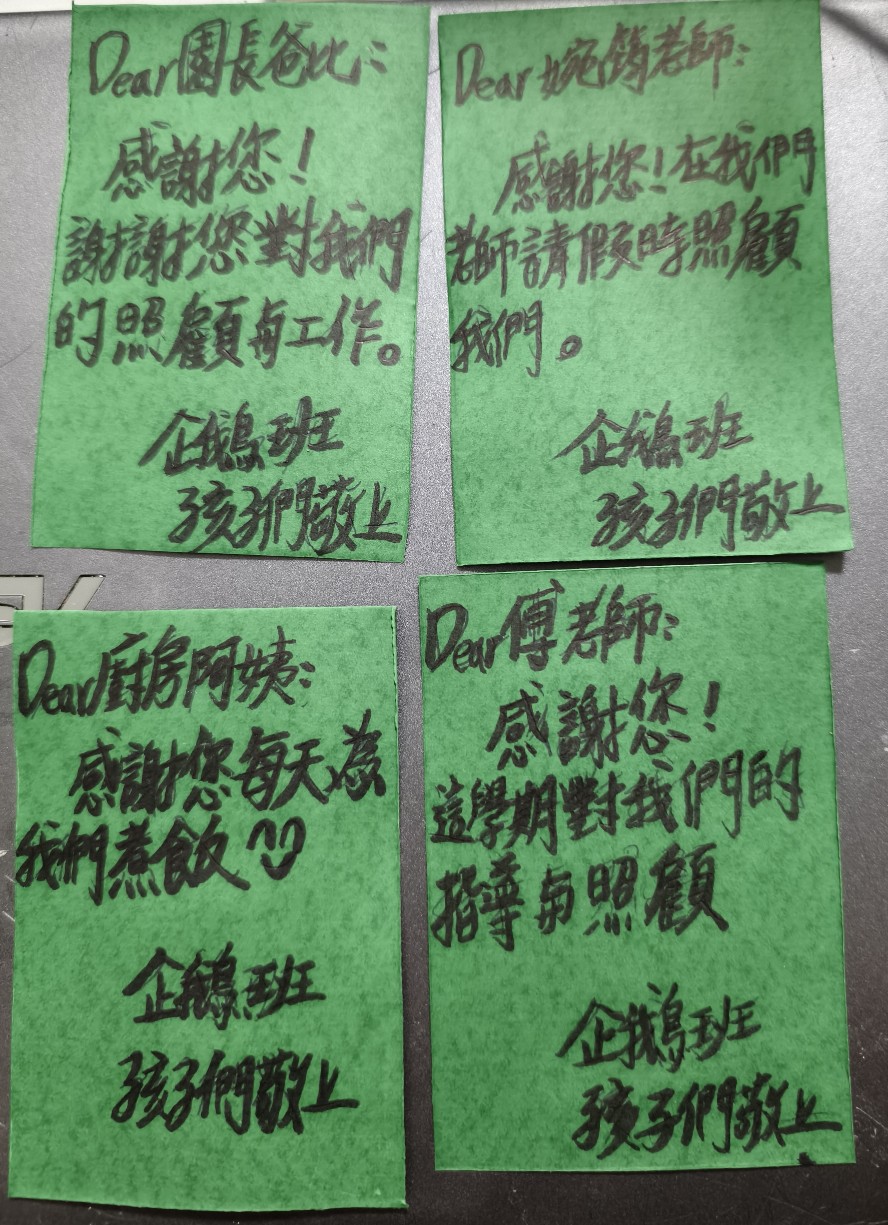 Dear園長爸比:
感謝您!
謝謝您對我們
的照顧與工作。
企鵝班
孩子們敬上
Dear婉筠老師:
感謝您!在我們
老師請假時照顧
我們。
企鵝班
孩子們敬上
Dear廚房阿姨:
感謝您每天為
我們煮飯
企鵝班
孩子們敬上
Dear傅老師:
感謝您!
這學期對我們的
指導與照顧
企鵝班
孩子們敬上